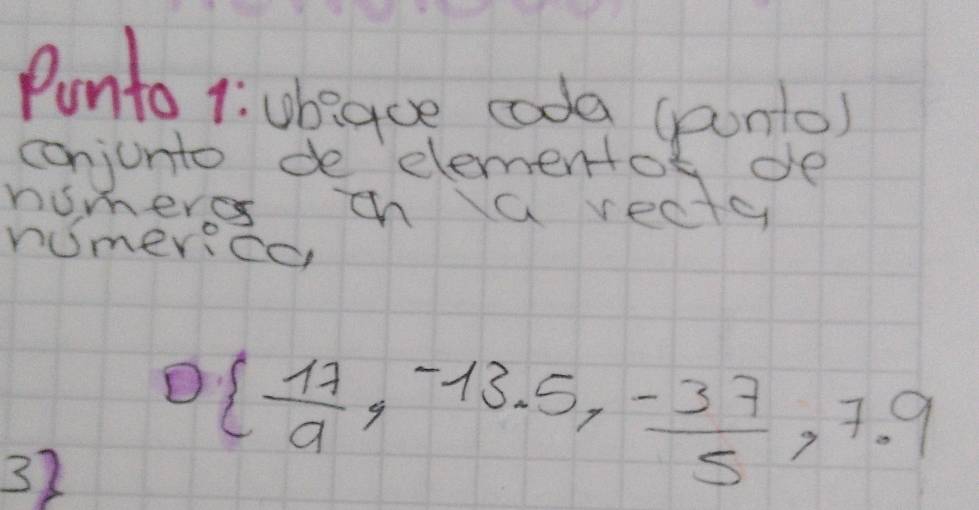 Punto 1: Ubique coda (punto)
conjunto de elementos de
números en la recta
númerica
D {17/9, -13.5, -37/5, 7.9
3}